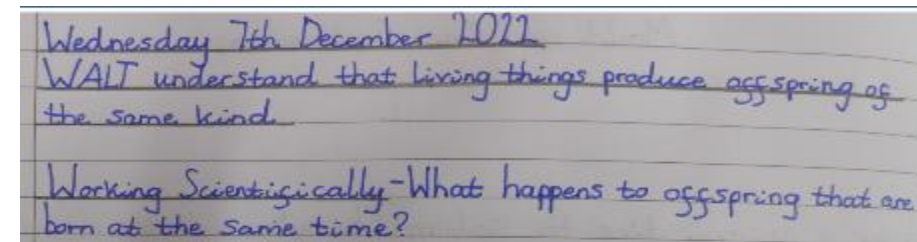 Wednesday 7th December 2022
WALT understand that living things produce offspring of
the same kind
Working Scientifically-What happens to offspring that are
born at the same time?